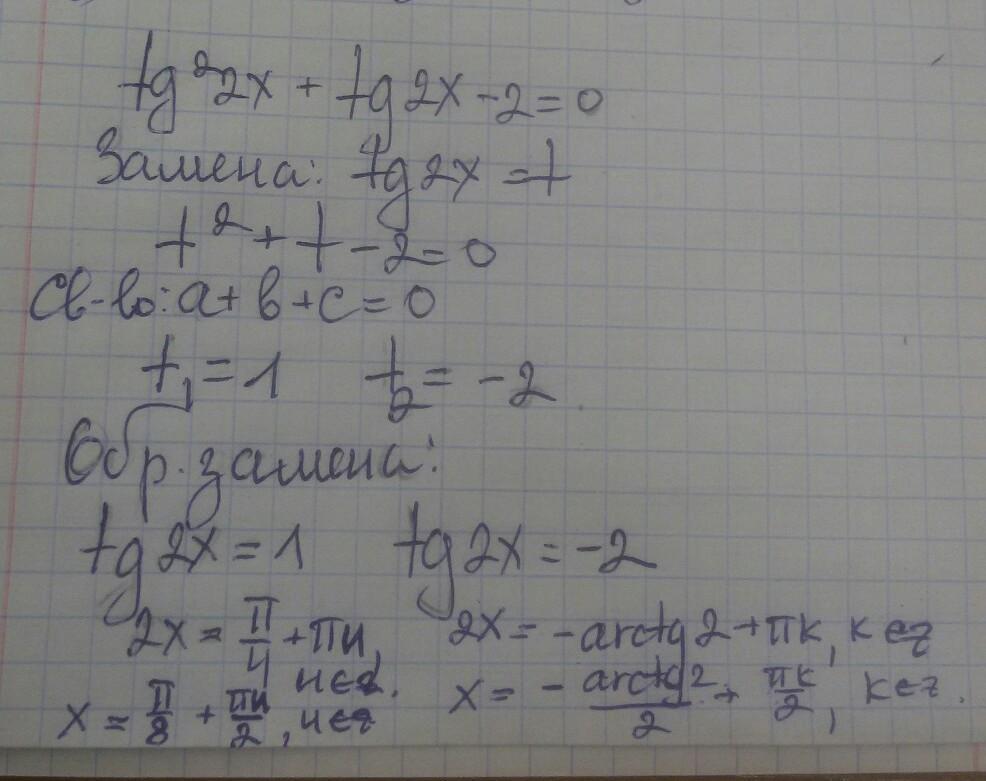 tg²2x + tg2x - 2 = 0
Замена: tg2x = t
t² + t - 2 = 0
Св-во: a + в + c = 0
t₁ = 1 t₂ = -2
Обр. замена:
tg2x = 1 tg2x = -2
2x = π/4 + πn, n∈z. 2x = -arctg2 + πk, k∈z
x = π/8 + πn/2, n∈z x = -arctg2/2 + πk/2, k∈z.